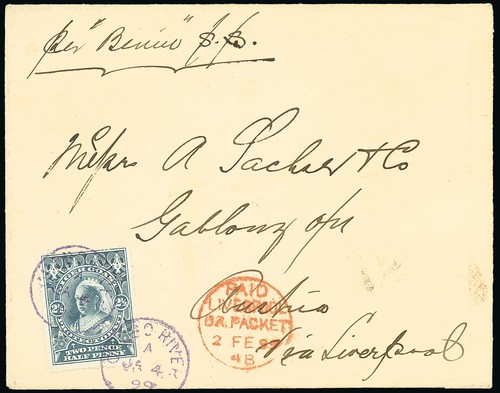 per "Benin" s.s.
Messrs A Sachse & Co
Gablonz o/N
Austria
Via Liverpool
NIGER COAST
PROTECTORATE
2½ 2½
TWO PENCE
HALF PENNY
RIVER
A
4
99
PAID
LIVERPOOL
BR. PACKET
2 FE 99
4B